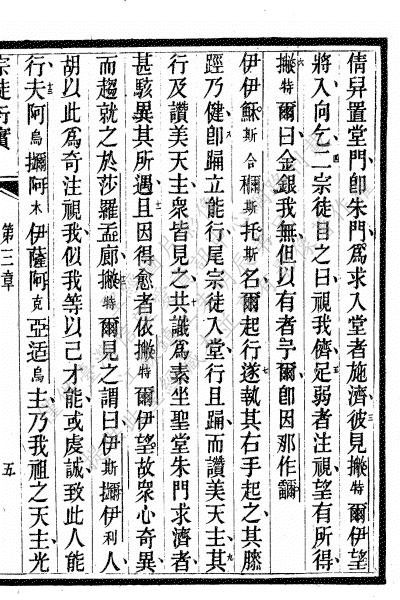 倩舁置堂門卽朱門爲求入堂者施濟彼見撇特爾伊望三
將入向乞二宗徒目之曰視我儕足弱者注視望有所得四五
撇特爾曰金銀我無但以有者予爾卽因那作爾六
伊伊穌斯合穪斯托斯名爾起行遂執其右手起之其膝七
踁乃健卽踊立能行尾宗徒入堂行且踊而讚美天主其八九
行及讚美天主衆皆見之共識爲素坐聖堂朱門求濟者十
甚駭異其所遇且因得愈者依撇特爾伊望故衆心奇異十一
而趨就之於莎羅孟廊撇特爾見之謂曰伊斯擳爾伊利人十二
胡以此爲奇注視我似我等以己才能或虔誠致此人能
行夫阿烏擳阿木伊薩阿克亞适烏主乃我祖之天主光十三
宗徒行實
第三章
五